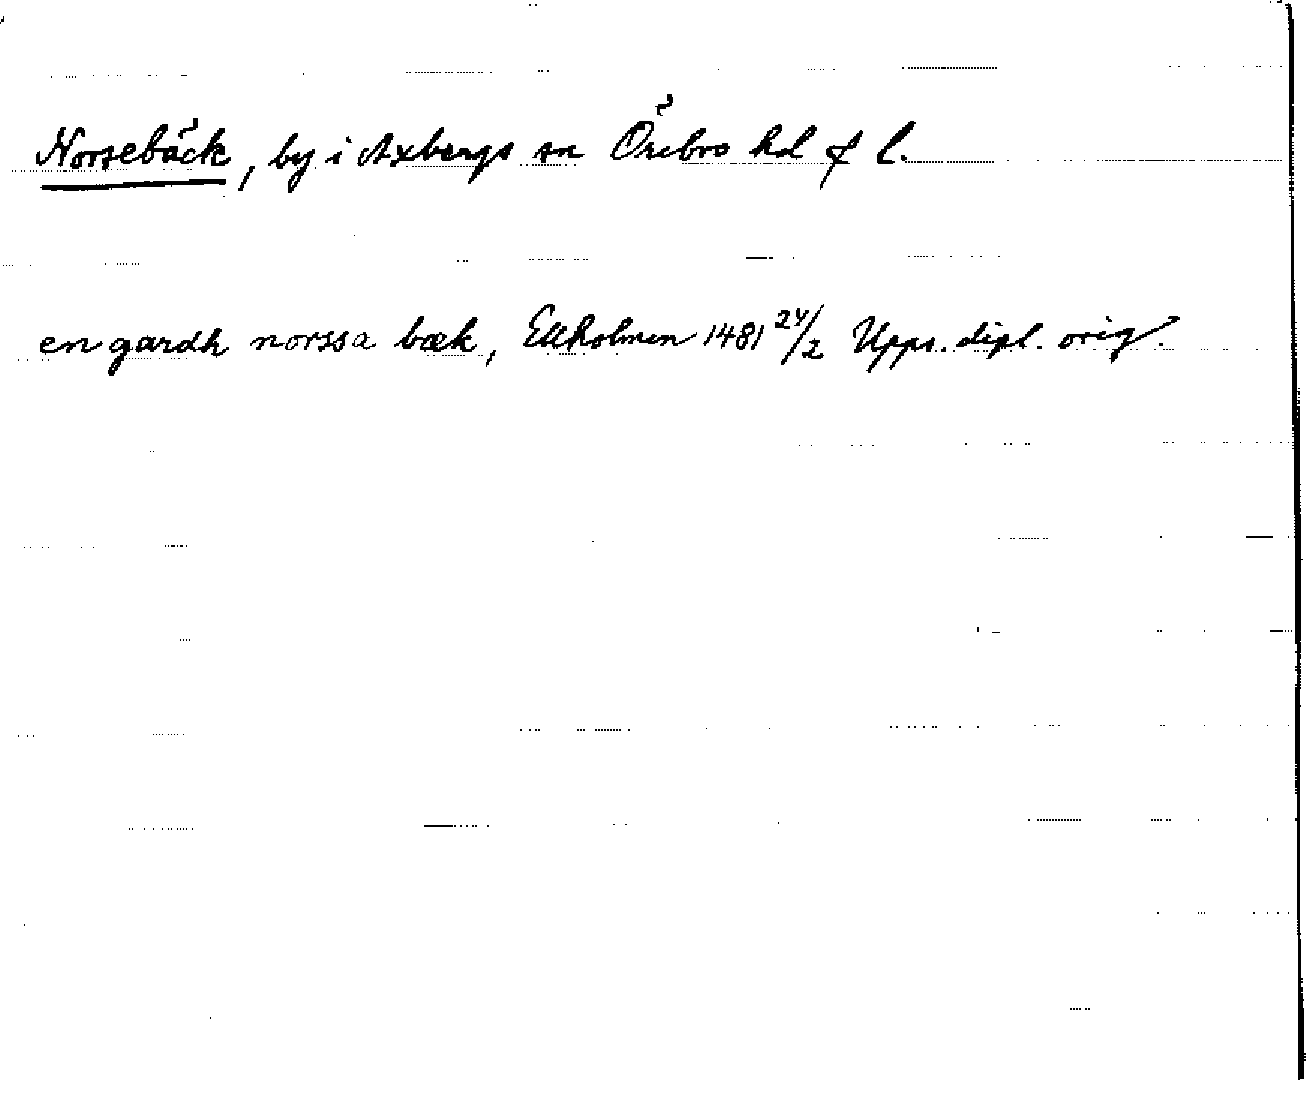 Norsebäck, by i Axbergs sn Örebro hd & l.
en gardh norssa bæk, Ekholmen 1481 24/2 Upps. dipl. orig.